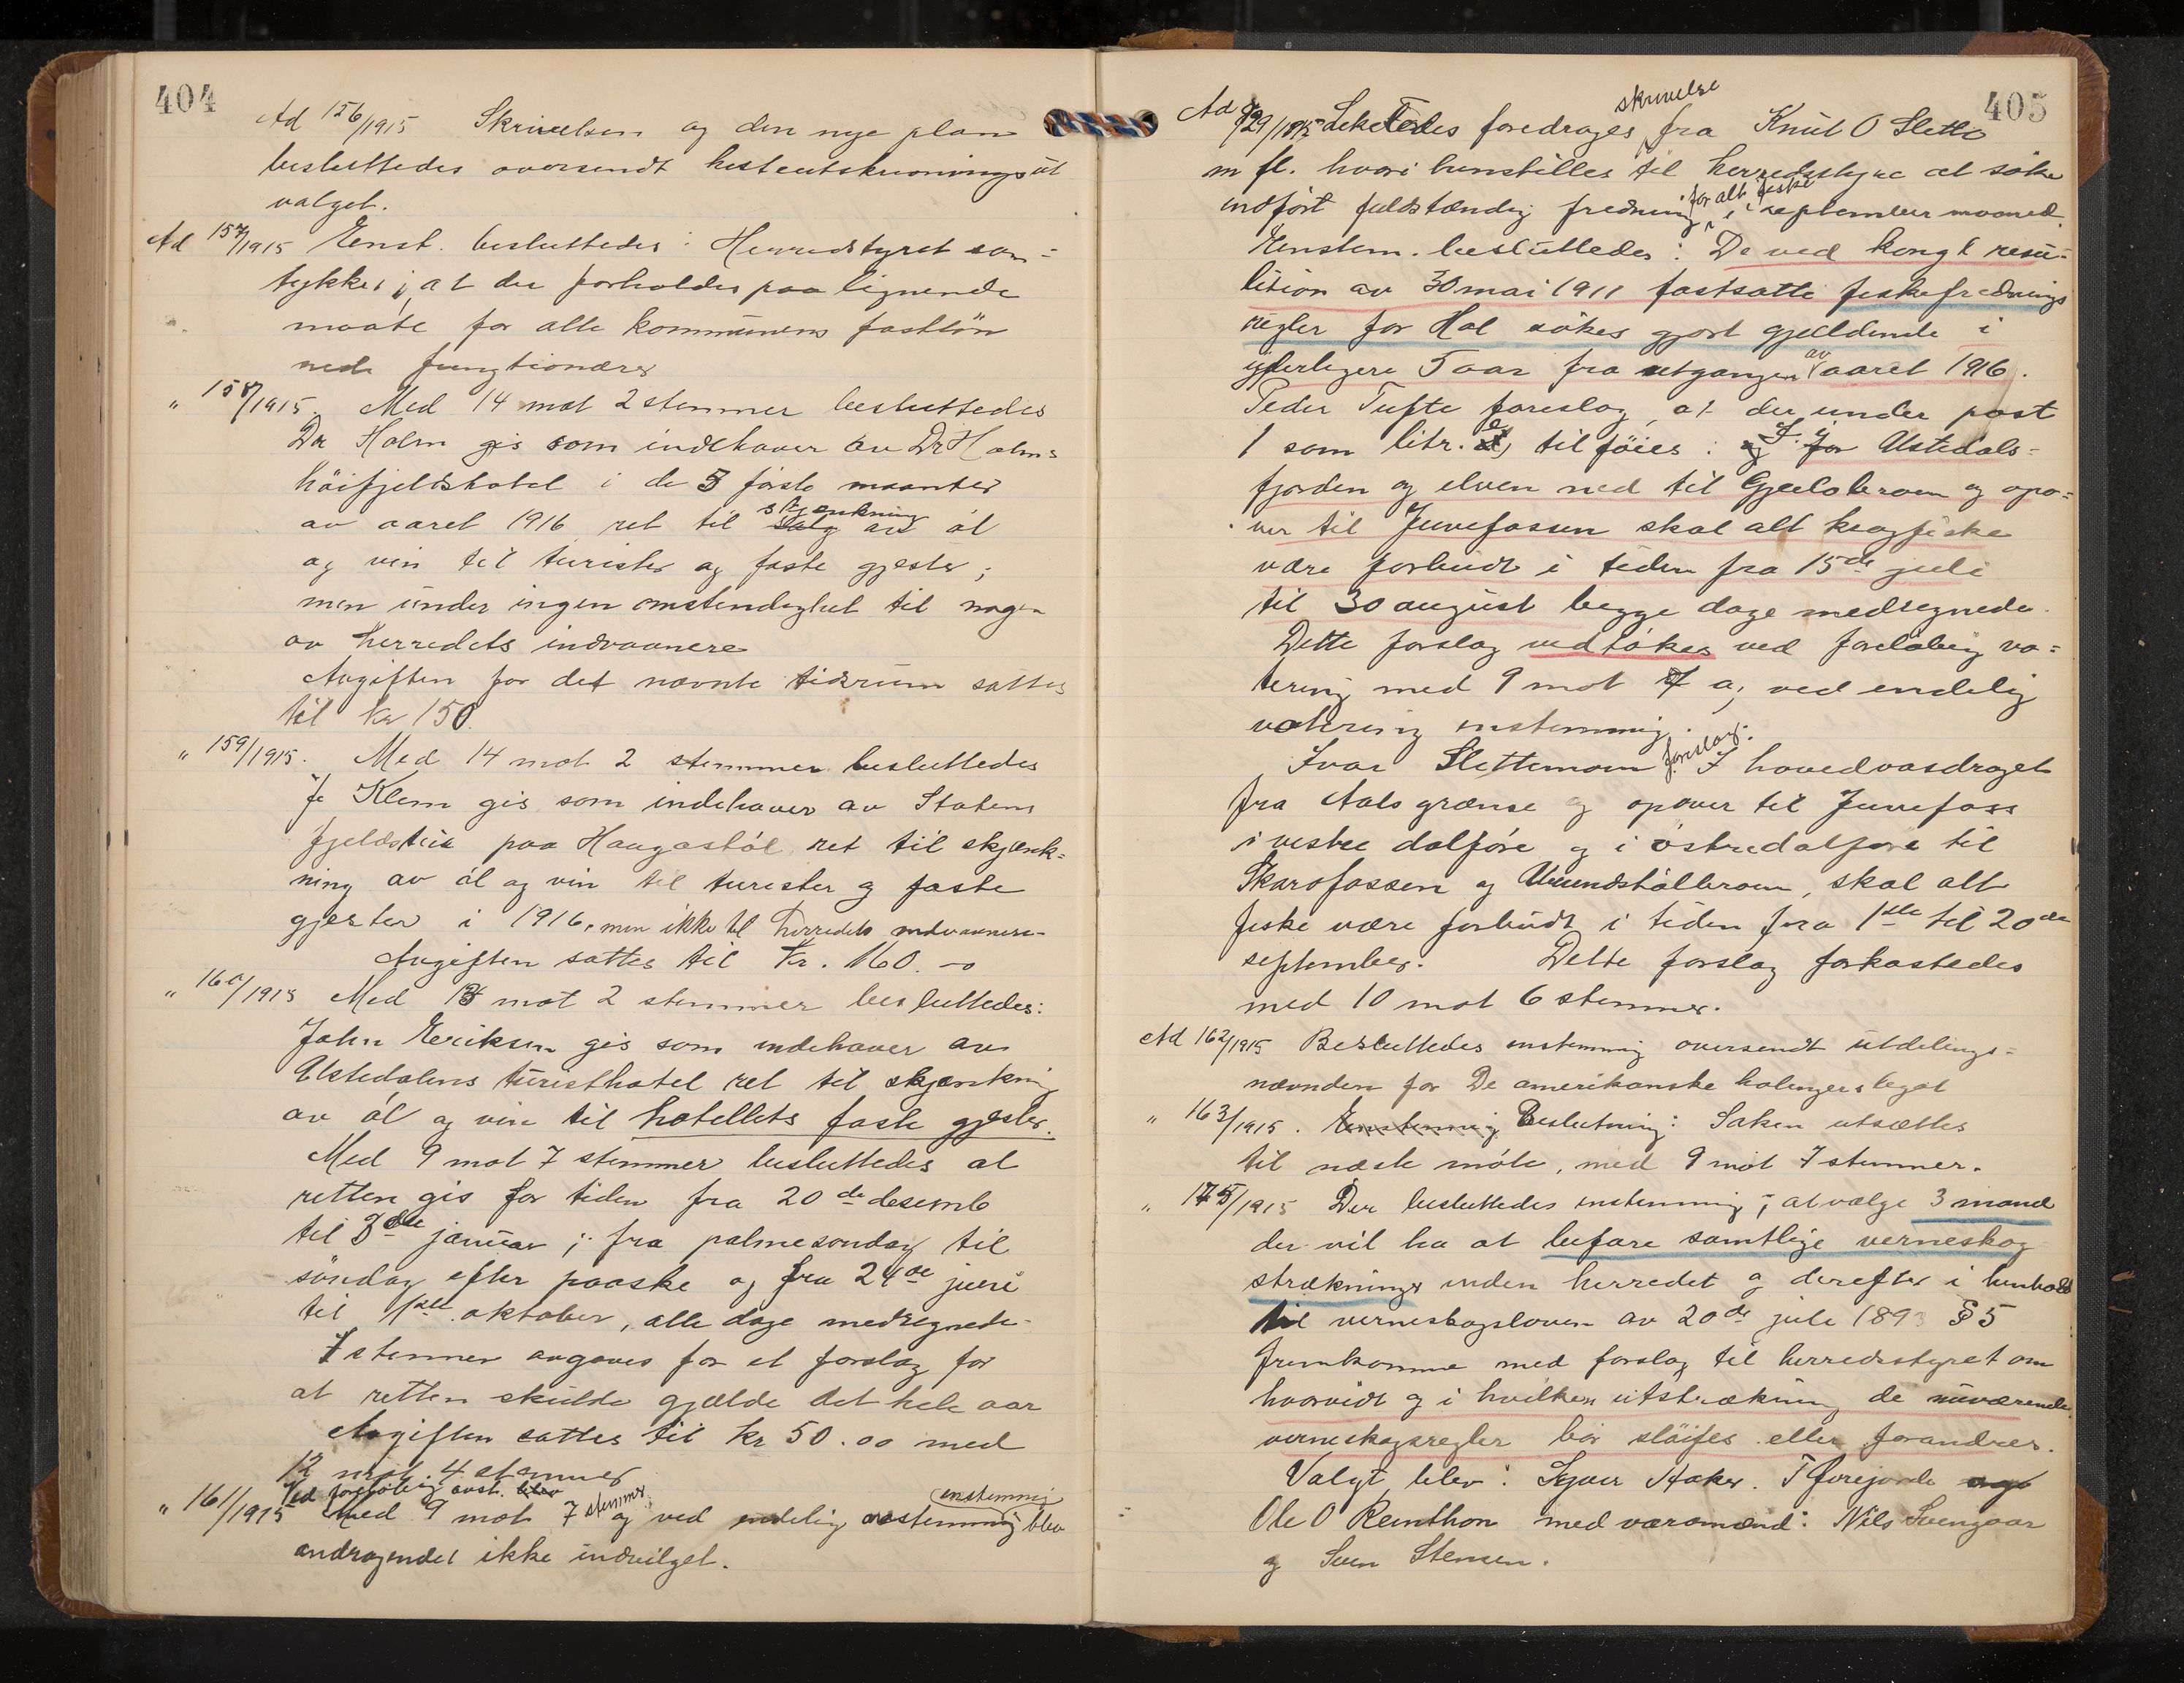 404
Ad 156/1915 Skrivelsen og den nye plan
besluttedes oversendt hesteutskrivningsut
valget.
Ad 157/1915 Enst. besluttedes: Herredstyret sam=
tykker i, at der forholdes paa lignende
maate for alle kommunens fastløn
nede fungtionærer
" 158/1915. Med 14 mot 2 stemmer besluttedes
Dr Holm gis som indehaver av Dr Holms
höifjeldshotel i de 3 første maanter
av aaret 1916 ret til skjænkning av öl
og vin til turister og faste gjester;
men under ingen omstendighet til nogen
av herredets indvaanere
Avgiften for det nævnte tidsrum sattes
til kr 150.
" 159/1915. Med 14 mot 2 stemmer besluttedes
Klem gis som indehaver av Statens
fjeldstue paa Haugastöl ret til skjænk=
ning av öl og vin til turister og faste
gjester i 1916, men ikke til herredets indvaanere
Avgiften sattes til kr. 160.-
" 160/1915 Med mot 2 stemmer besluttedes:
John Eriksen gis som indehaver av
Ustedalens turisthotel ret til skjænkning
av öl og vin til hotellets faste gjester.
Med 9 mot 7 stemmer besluttedes at
retten gis for tiden fra 20de desemb
til 3die januar; fra palmesondag til
söndag efter paaske og fra 24de juni
til 1ste oktober, alle dage medregnede.
7 stemmer avgaves for et forslag for
at retten skulde gjælde det hele aar
Avgiften sattes til kr 50.00 med
12 mot 4 stemmer
Ved foreløbig avst. blev
" 161/1915 Med 9 mot 7 stemmer og ved endelig avstemning enstemmig blev
andragendet ikke indvilget.
405
Ad 129/1915 Likeledes foredrages skrivelse fra Knut O Sletto
m fl. hvori henstilles til herredsstyre at söke
indfört fuldstændig fredning for alt fiske i september maaned.
Enstem. besluttedes: De ved kongl resu=
lition av 30 mai 1911 fastsatte fiskefrednings
regler for Hol sökes gjort gjeldende i
yterligere 5 aar fra utgangen av aaret 1916.
Peder Tufte foreslog, at der under post
1 som litr. e, tilföies: I Ustedals=
fjorden og elven ned til Gjeilobroen og opo=
ver til Juvefossen skal alt krogfiske
være forbudt i tiden fra 15de juli
til 30 august begge dage medregnede.
Dette forslag vedtokes ved foreløbig vo=
tering med 9 mot 7 o, ved endelig
votering enstemmig.
Ivar Slettemoen forslog: I hovedvasdraget
fra Aals grænse og opover til Juvefoss
i vestre dalføre og i östre dalføre til
Skarofossen og skal alt
fiske være forbudt i tiden fra 1ste til 20de
september. Dette forslag forkastedes
med 10 mot 6 stemmer.
Ad 162/1915 Besluttedes enstemmig oversendt utdelings=
nævnden for De amerikanske holingers legat
" 163/1915. Enstemmig Beslutning: Saken utsættes
til næste möte, med 9 mot 7 stemmer.
" 175/1915 Der besluttedes enstemmig, at vælge 3 mand
der vil ha at befare samtlige verneskog
strækninger inden herredet og derefter i henhold
til verneskogsloven av 20de juli 1893 § 5
fremkomme med forslag til herredsstyret om
hvorvidt og i hvilken utstrækning de nuværende
verneskogsregler bör slöifes eller forandres.
Valgt blev: Sjver Aaker. T Gurejorde
Ole O Reinthon med varamænd: Nils Svengaar
og Sven Stensen.